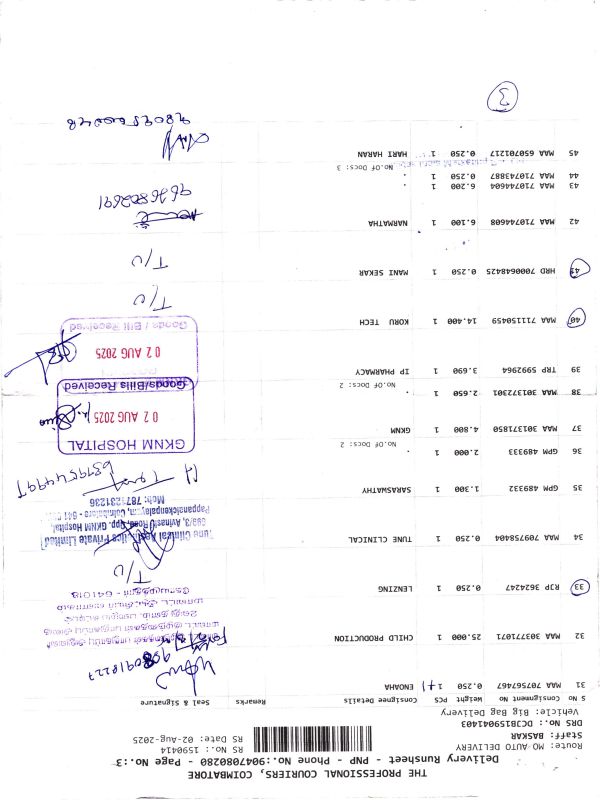 THE PROFESSIONAL COURIERS, COIMBATORE
Delivery Runsheet - PNP - Phone No.:9047080280 - Page No.:3
Route: MO AUTO DELIVERY
Staff: BASKAR
DRS No.: DC3B15901403
Vehicle: Big Bag Delivery
RS No.: 1590414
RS Date: 02-Aug-2025
S No Consignment No Weight PCS Consignee Details Remarks Seal & Signature
31 MAA 707567467 0.250 1 ENOAHA
9080918227
32 MAA 303771071 25.000 1 CHILD PRODUCTION
641018
33 RJP 3624247 0.250 1 LENZING
T/U
34 MAA 709758404 0.250 1 TUNE CLINICAL
Tune Clinical Private Limited
683/3, Avinashi Road, Opp. GKNM Hospital,
Pappanaickenpalayam, Coimbatore - 641
Mob: 7871231236
35 GPM 489332 1.300 1 SARASWATHY
36 GPM 489333 2.000 1 .
No.Of Docs: 2
37 MAA 301371850 4.800 1 GKNM
GKNM HOSPITAL
02 AUG 2025
Goods/Bills Received
38 MAA 301372101 2.650 1 .
No.Of Docs: 2
39 TRP 59922964 3.690 1 IP PHARMACY
02 AUG 2025
Goods / Bill Received
40 MAA 711150459 14.400 1 KORU TECH
T/U
41 HRD 7000648425 0.250 1 MANI SEKAR
T/U
42 MAA 710744608 6.100 1 NARMATHA
9626802691
43 MAA 710744604 6.200 1 .
44 MAA 710743887 0.250 1 .
No.Of Docs: 3
45 MAA 650701217 0.250 1 HARI HARAN
3